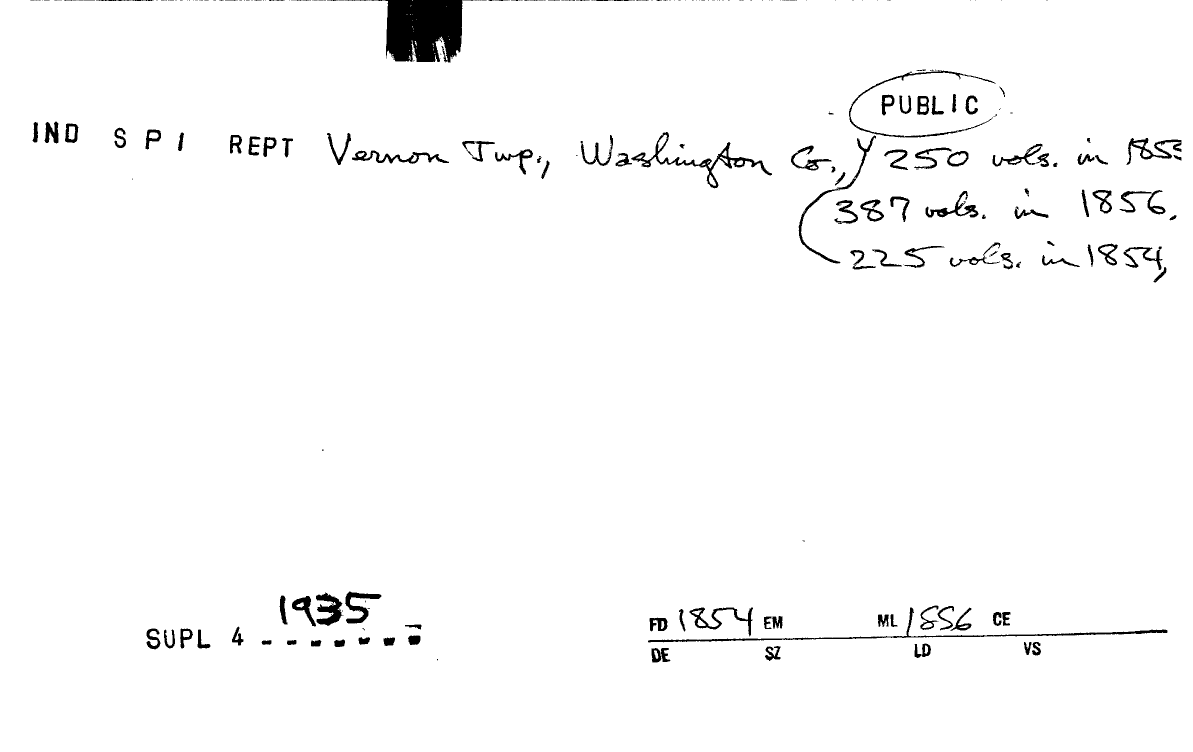 PUBLIC
IND S P I REPT Vernon Twp., Washington Co., 250 vols. in 185
387 vols. in 1856.
225 vols. in 1854,
1935
SUPL 4
FD 1854 EM ML 1856 CE
DE SZ LD VS